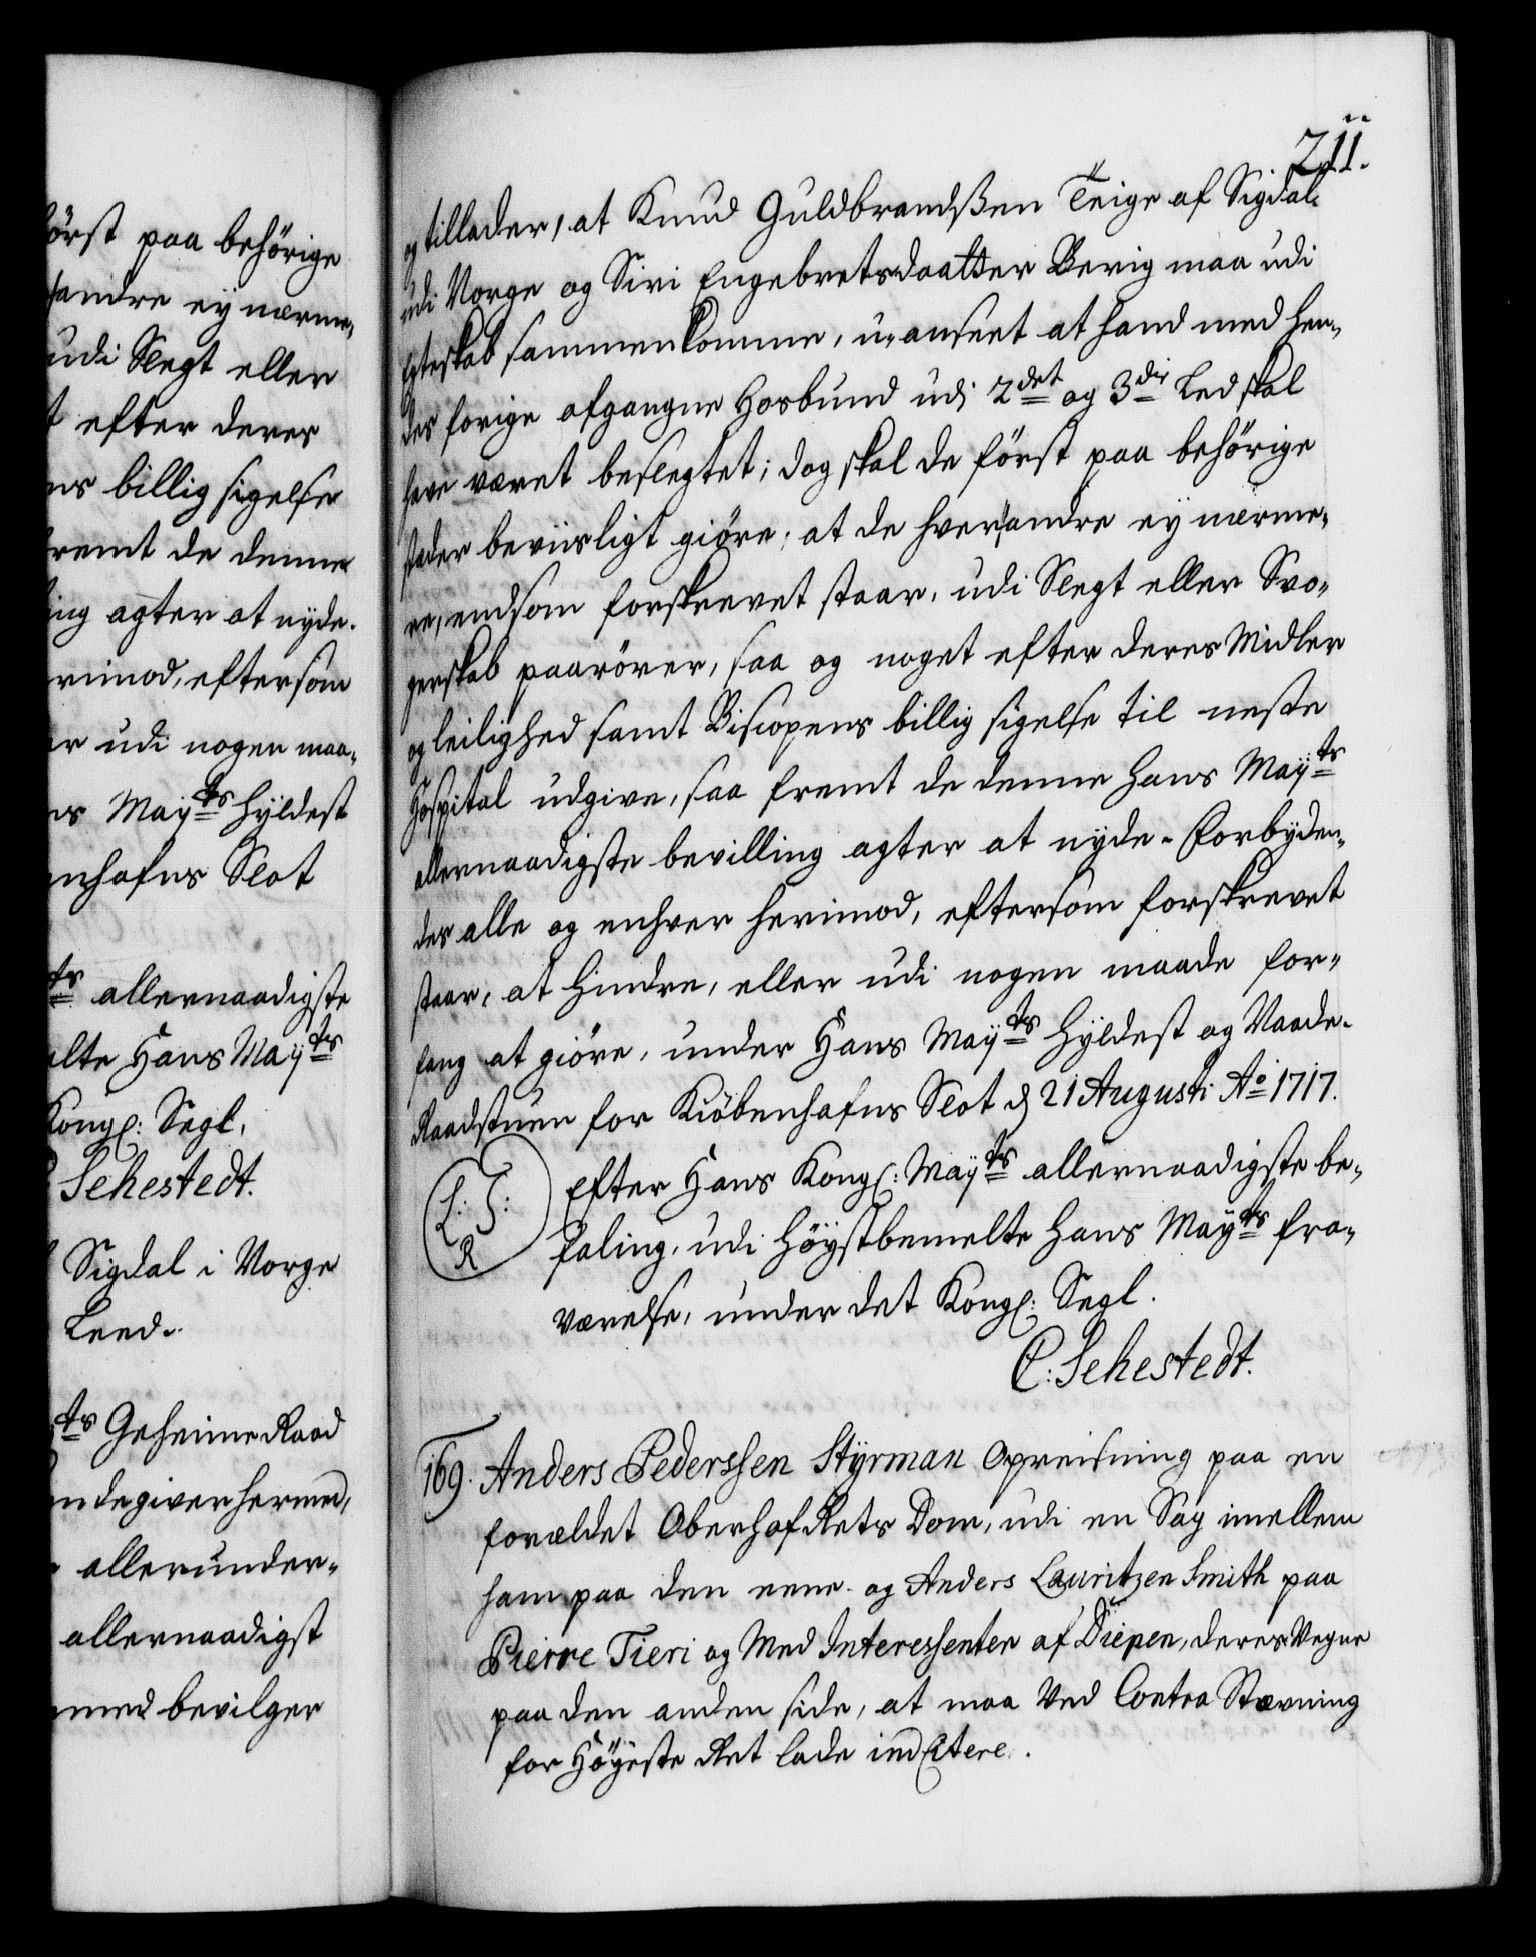 først paa behørige
andre ey nærme„
udi Slegt eller
t efter deres
ns billig sigelse
fremt de denne
ling agter at nyde.
erimod, eftersom
er udi nogen maa„
ns Mayts Hyldest
enhafns Slot
ts allernaadigste
elte Hans Mayts
Kongl: Segl.
Sehestedt.
Sigdal i Norge
Leed.
ts Geheime Raad
nde giver herme„
allerunder„
allernaadigst
med bevilger
211.
og tillader, at Knud Guldbrandßen Teige af Sigdal
udi Norge og Siri Engebretsdaatter Berig maa udi
Egteskab sammenkomme, u-anseet at hand med hen„
des forige afgangne Hosbund udi 2det og 3die Led skal
have været beslegtet; dog skal de først paa behørige
stæder beviisligt giøre, at de hverandre ey nærme„
re, end som forskrevet staar, udi Slegt eller Svo„
gerskab paarører, saa og noget efter deres Midler
og leilighed samt Biscopens billig sigelse til neste
Hospital udgive, saa fremt de denne Hans Mayts
allernaadigste bevilling agter at nyde. Forbyden„
des alle og enhver herimod, eftersom forskrevet
staar, at hindre, eller udi nogen maade for„
fang at giøre, under Hans Mayts Hyldest og Naade.
Raadstuen for Kiøbenhafns Slot d 21 Augusti Ao 1717.
L: S:
R
Efter Hans Kongl: Mayts allernaadigste be„
faling, udi Høystbemelte Hans Mayts fra„
værelse, under det Kongl: Segl.
C: Sehestedt.
169. Anders Pederssen Styrman Opreisning paa en
forældet Oberhofrets Dom, udi en Sag imellem
ham paa den eene og Anders Lauritzen Smith paa
Pierre Tieri og Med Interessenter af Diepen, deres Vegne
paa den anden side, at maa ved Contra Stævning
for Høyeste Ret lade ind Citere.